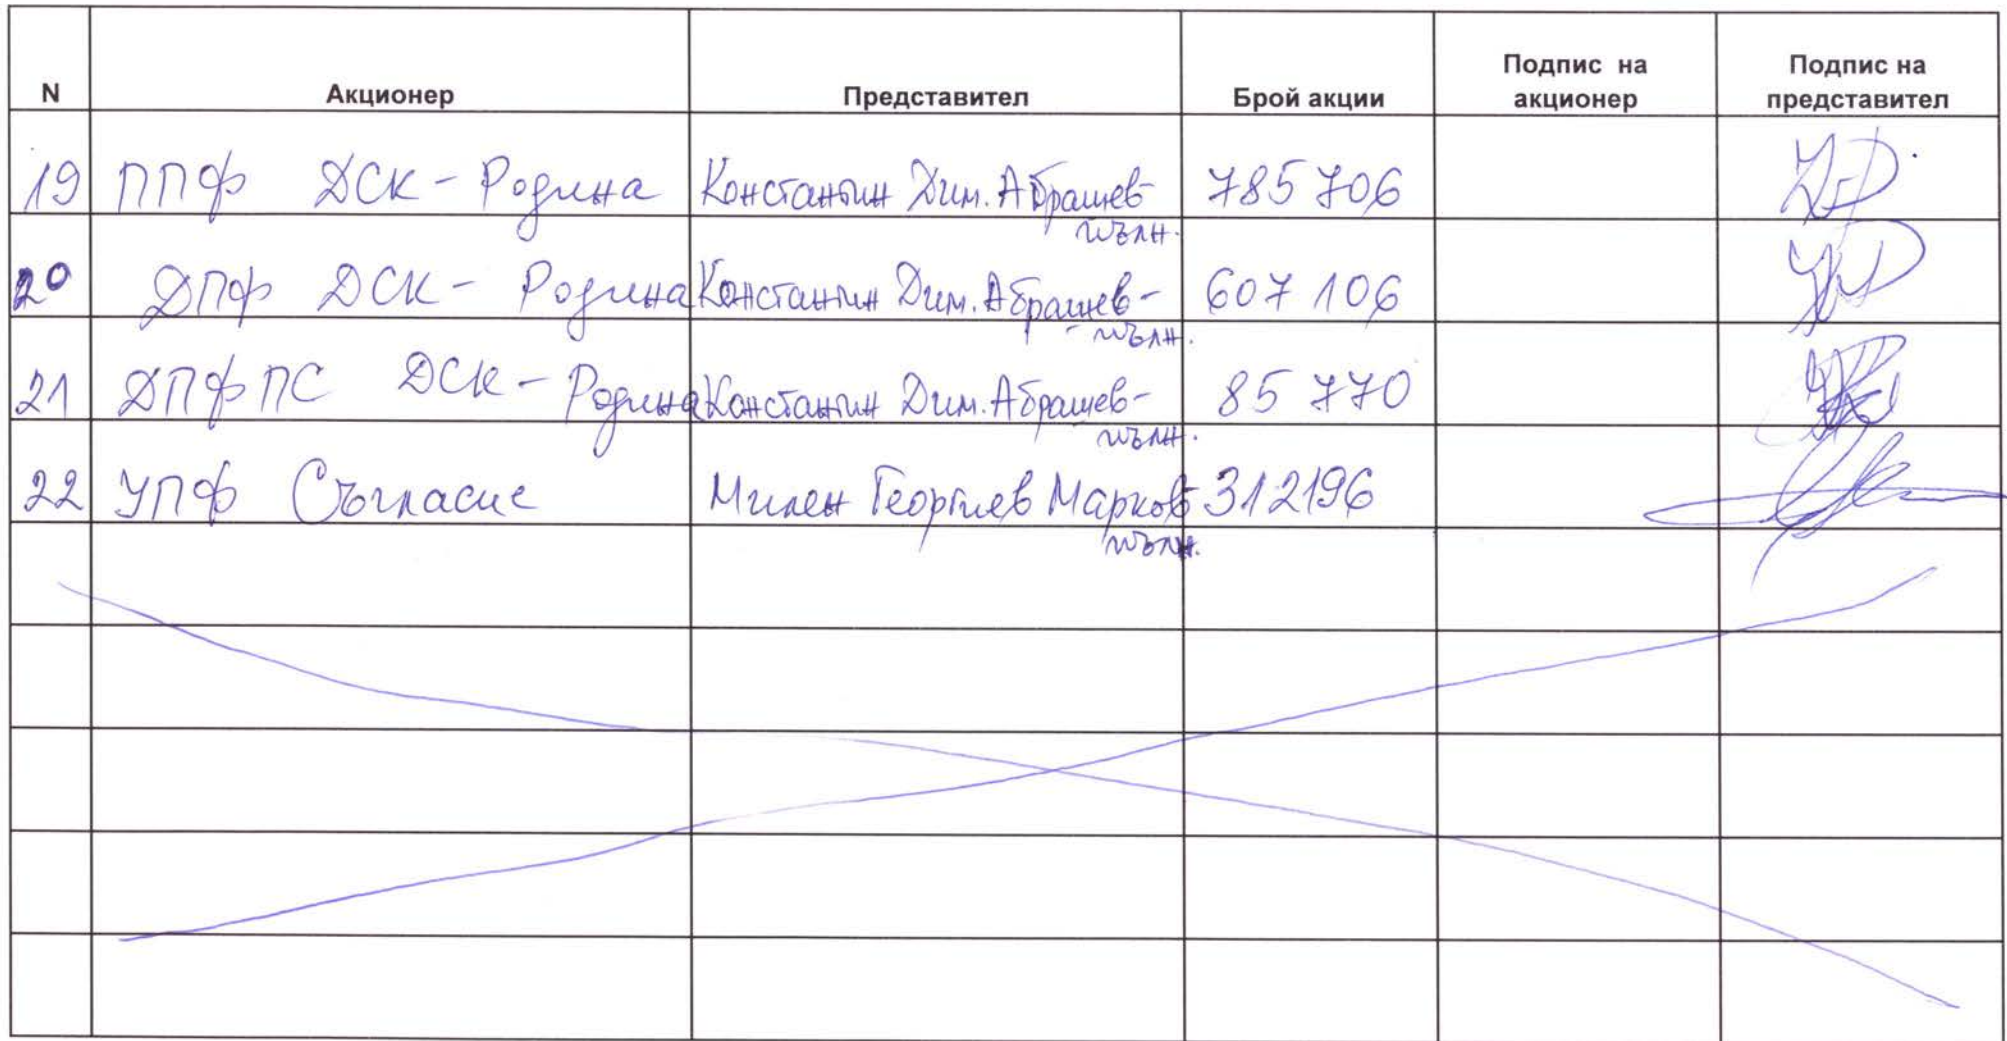 N Акционер Представител Брой акции Подпис на акционер Подпис на представител
19 ППФ ДСК - Родина Константин Дим. Абрашев - 785 706
пълн.
20 ДПФ ДСК - Родина Константин Дим. Абрашев - 607 106
- пълн.
21 ДПФПС ДСК - Родина Константин Дим. Абрашев - 85 770
пълн.
22 УПФ Съгласие Милен Георгиев Марков - 312196
пълн.